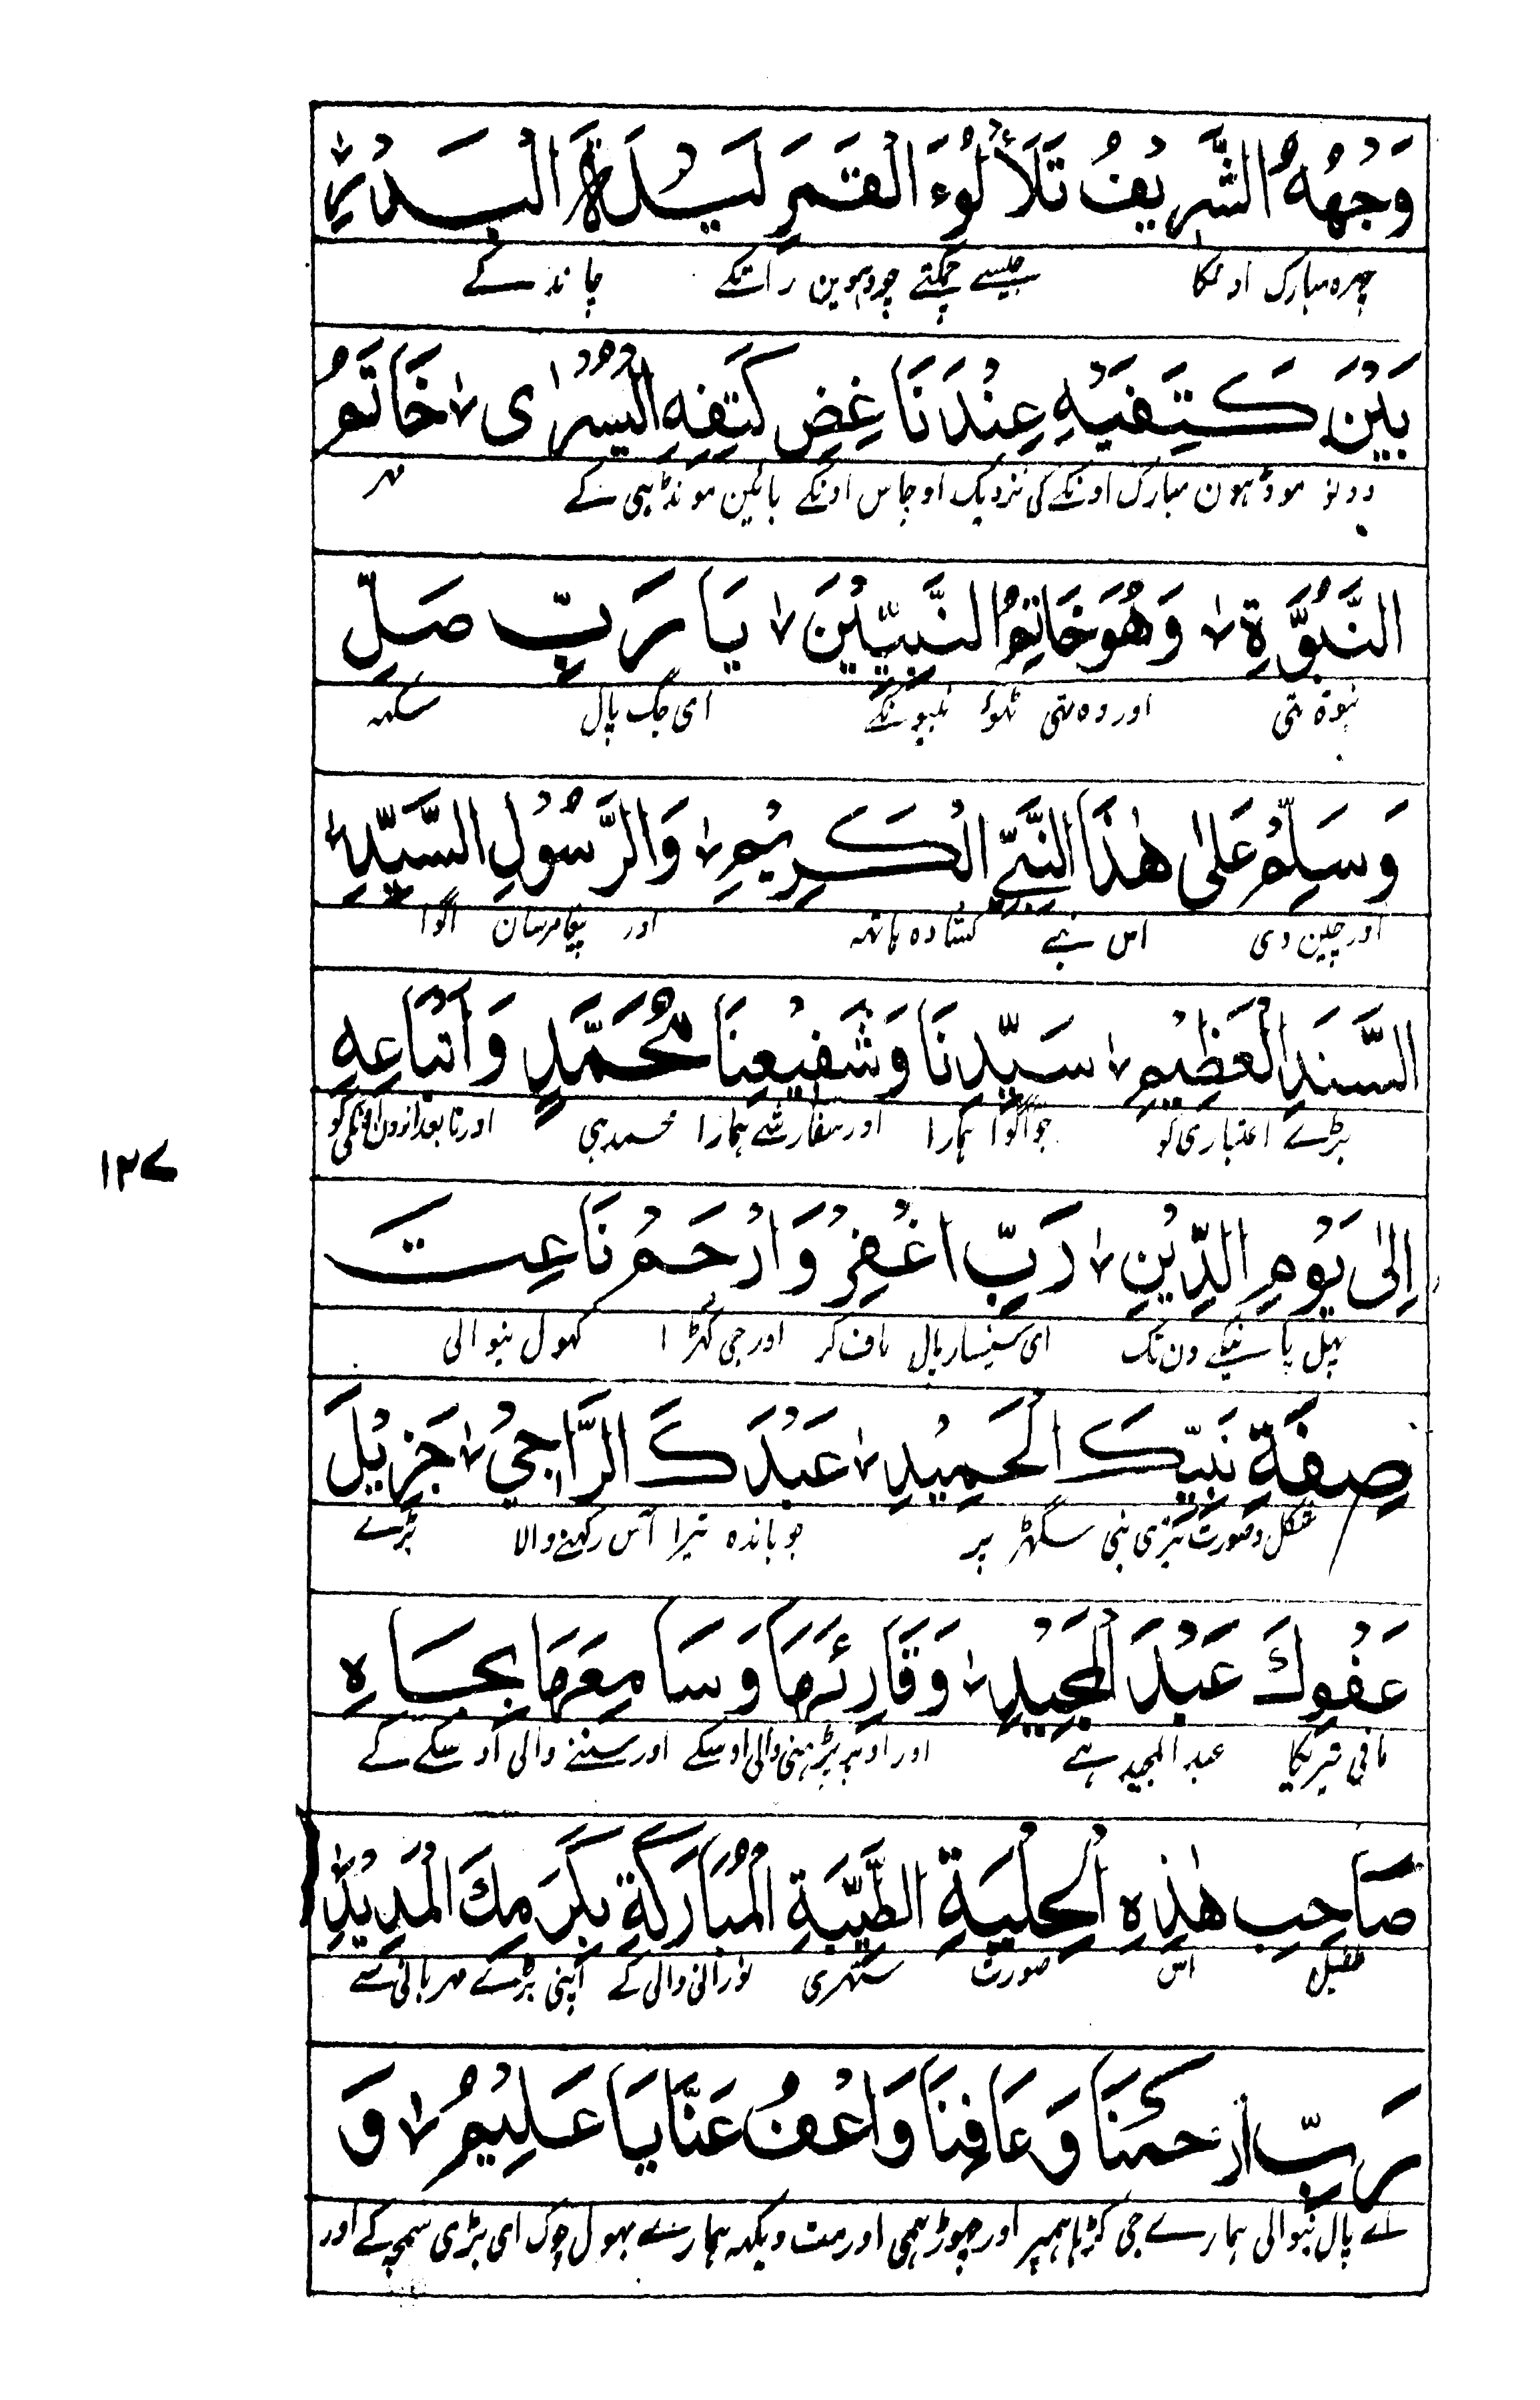 وَجْهُهُ الشَّرِيْفُ تَلَأْلُوءَ الْقَمَرِ لَيْلَةَ الْبَدْرِ
چہرہ مبارک اونکا جیسے چمکتے چودہوین راتکے چاند کے
بَيْنَ كَتِفَيْهِ عِنْدَ نَاغِضِ كَتِفِهِ الْيُسْرٰى خَاتَمُ
دونو موڈہون مبارک اونکے کی نزدیک اوچاس اونکے بائین مونڈہی کے مہر
النُّبُوَّةِ وَهُوَ خَاتِمُ النَّبِيِّيْنَ يَا رَبِّ صَلِّ
نبوۃ تہی اور وہ تہی نبیونکے ای جگ پال سکہہ
وَسَلِّمْ عَلٰى هٰذَا النَّبِيِّ الْكَرِيْمِ وَالرَّسُوْلِ السَّيِّدِ
اور چین دی اس نبی کشادہ ہاتہہ اور پیغامرسان اگوا
السَّنَدِ الْعَظِيْمِ سَيِّدِنَا وَشَفِيْعِنَا مُحَمَّدٍ وَاَتْبَاعِهِ
بڑے اعتباری کو جو اگوا ہمارا اور سفارشے ہمارا محمد ہی اور تابعدارون اونکی کو
اِلٰى يَوْمِ الدِّيْنِ رَبِّ اغْفِرْ وَارْحَمْ نَاعِتَ
پہل پانیکے دن تک ای سنسار پال ماف کر اور جی کُڑہا کہولنیوالی
صِفَةِ نَبِيِّكَ الْحَمِيْدِ عَبْدَكَ الرَّاجِيْ جَزِيْلَ
شکل و صورت تیری نبی سگہڑ پر جو باندہ تیرا آس رکہنے والا بڑے
عَفْوِكَ عَبْدَ الْمَجِيْدِ وَقَارِئَهَا وَسَامِعَهَا بِجَاهِ
مافی تیریکا عبد المجید ہے اور اوپر پڑہنی والی اوسکے اور سننے والی اوسکے کے
صَاحِبِ هٰذِهِ الْحِلْيَةِ الطَّيِّبَةِ الْمُبَارَكَةِ بِكَرَمِكَ الْمَدِيْدِ
طفیل اس صورت ستہری نورانی والی کے اپنی بڑے مہربانی سے
رَبِّ ارْحَمْنَا وَعَافِنَا وَاعْفُ عَنَّا يَا عَلِيْمُ وَ
اے پالنیوالی ہمارے جی کڑہا ہمپر اور چہوڑ ہمی اور مت دیکہہ ہمارے بہول چوک ای بڑی سمجہہ کے اور
۱۲۷